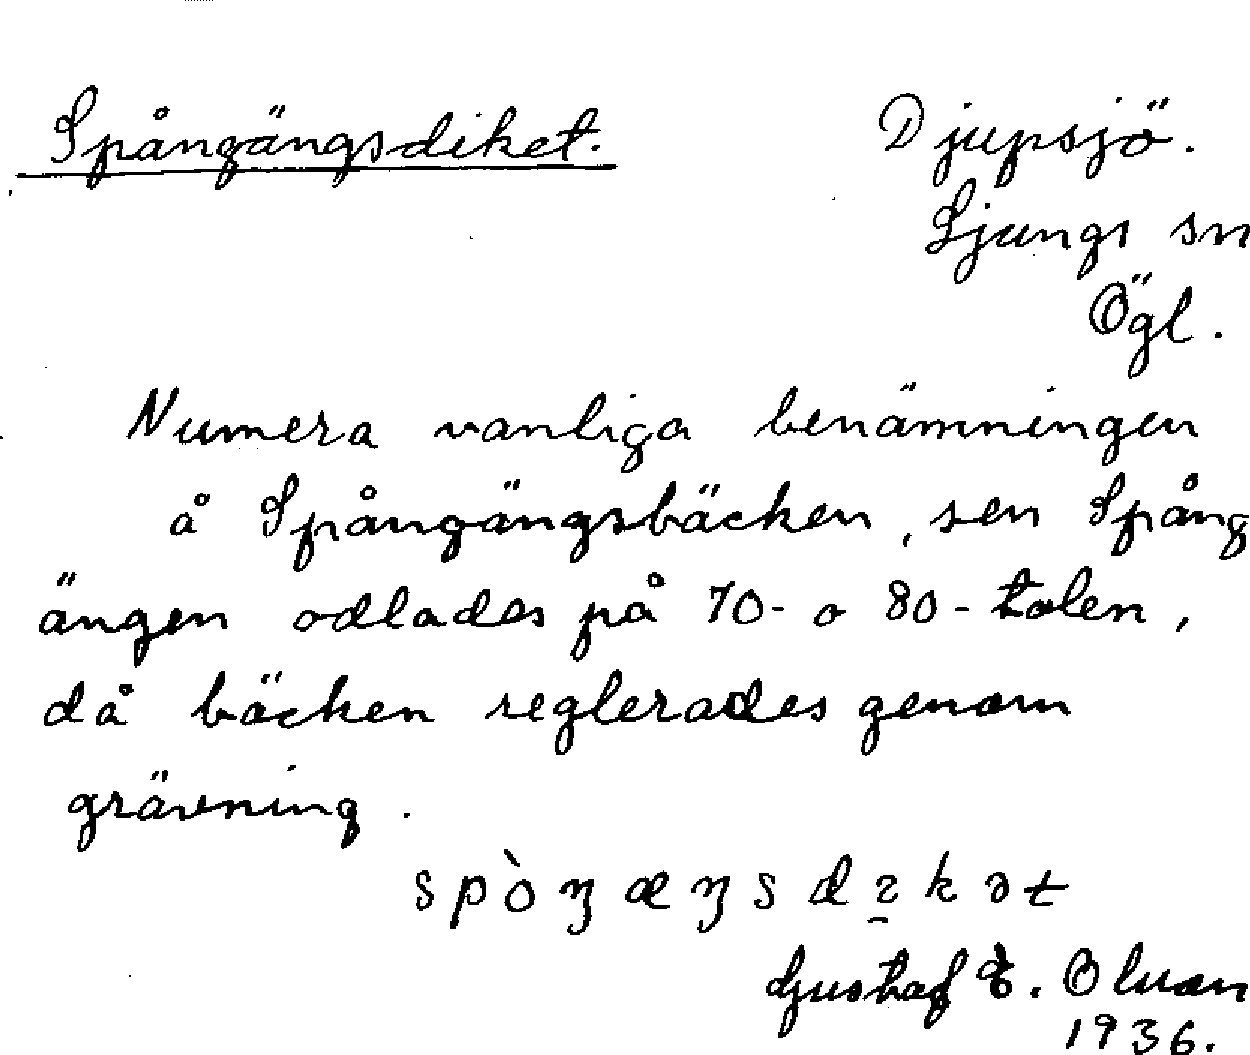 Spångängsdiket.
Djupsjö.
Ljungs sn
Ögl.
Numera vanliga benämningen
å Spångängsbäcken, sen Spång
ängen odlades på 70- o 80-talen,
då bäcken reglerades genom
grävning.
spòŋæŋsdɩ̠kət
Gustaf E.
1936.